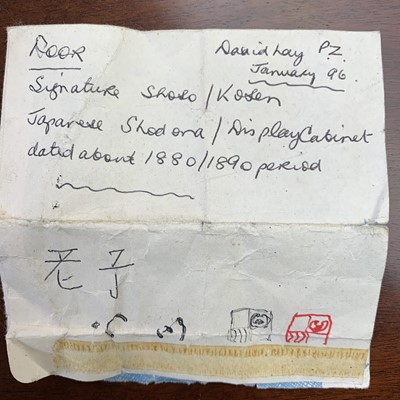 DOOR
David Lay P.Z.
January 96.
Signature Shoso/Kosen
Japanese Shodona/Display Cabinet
dated about 1880/1890 period